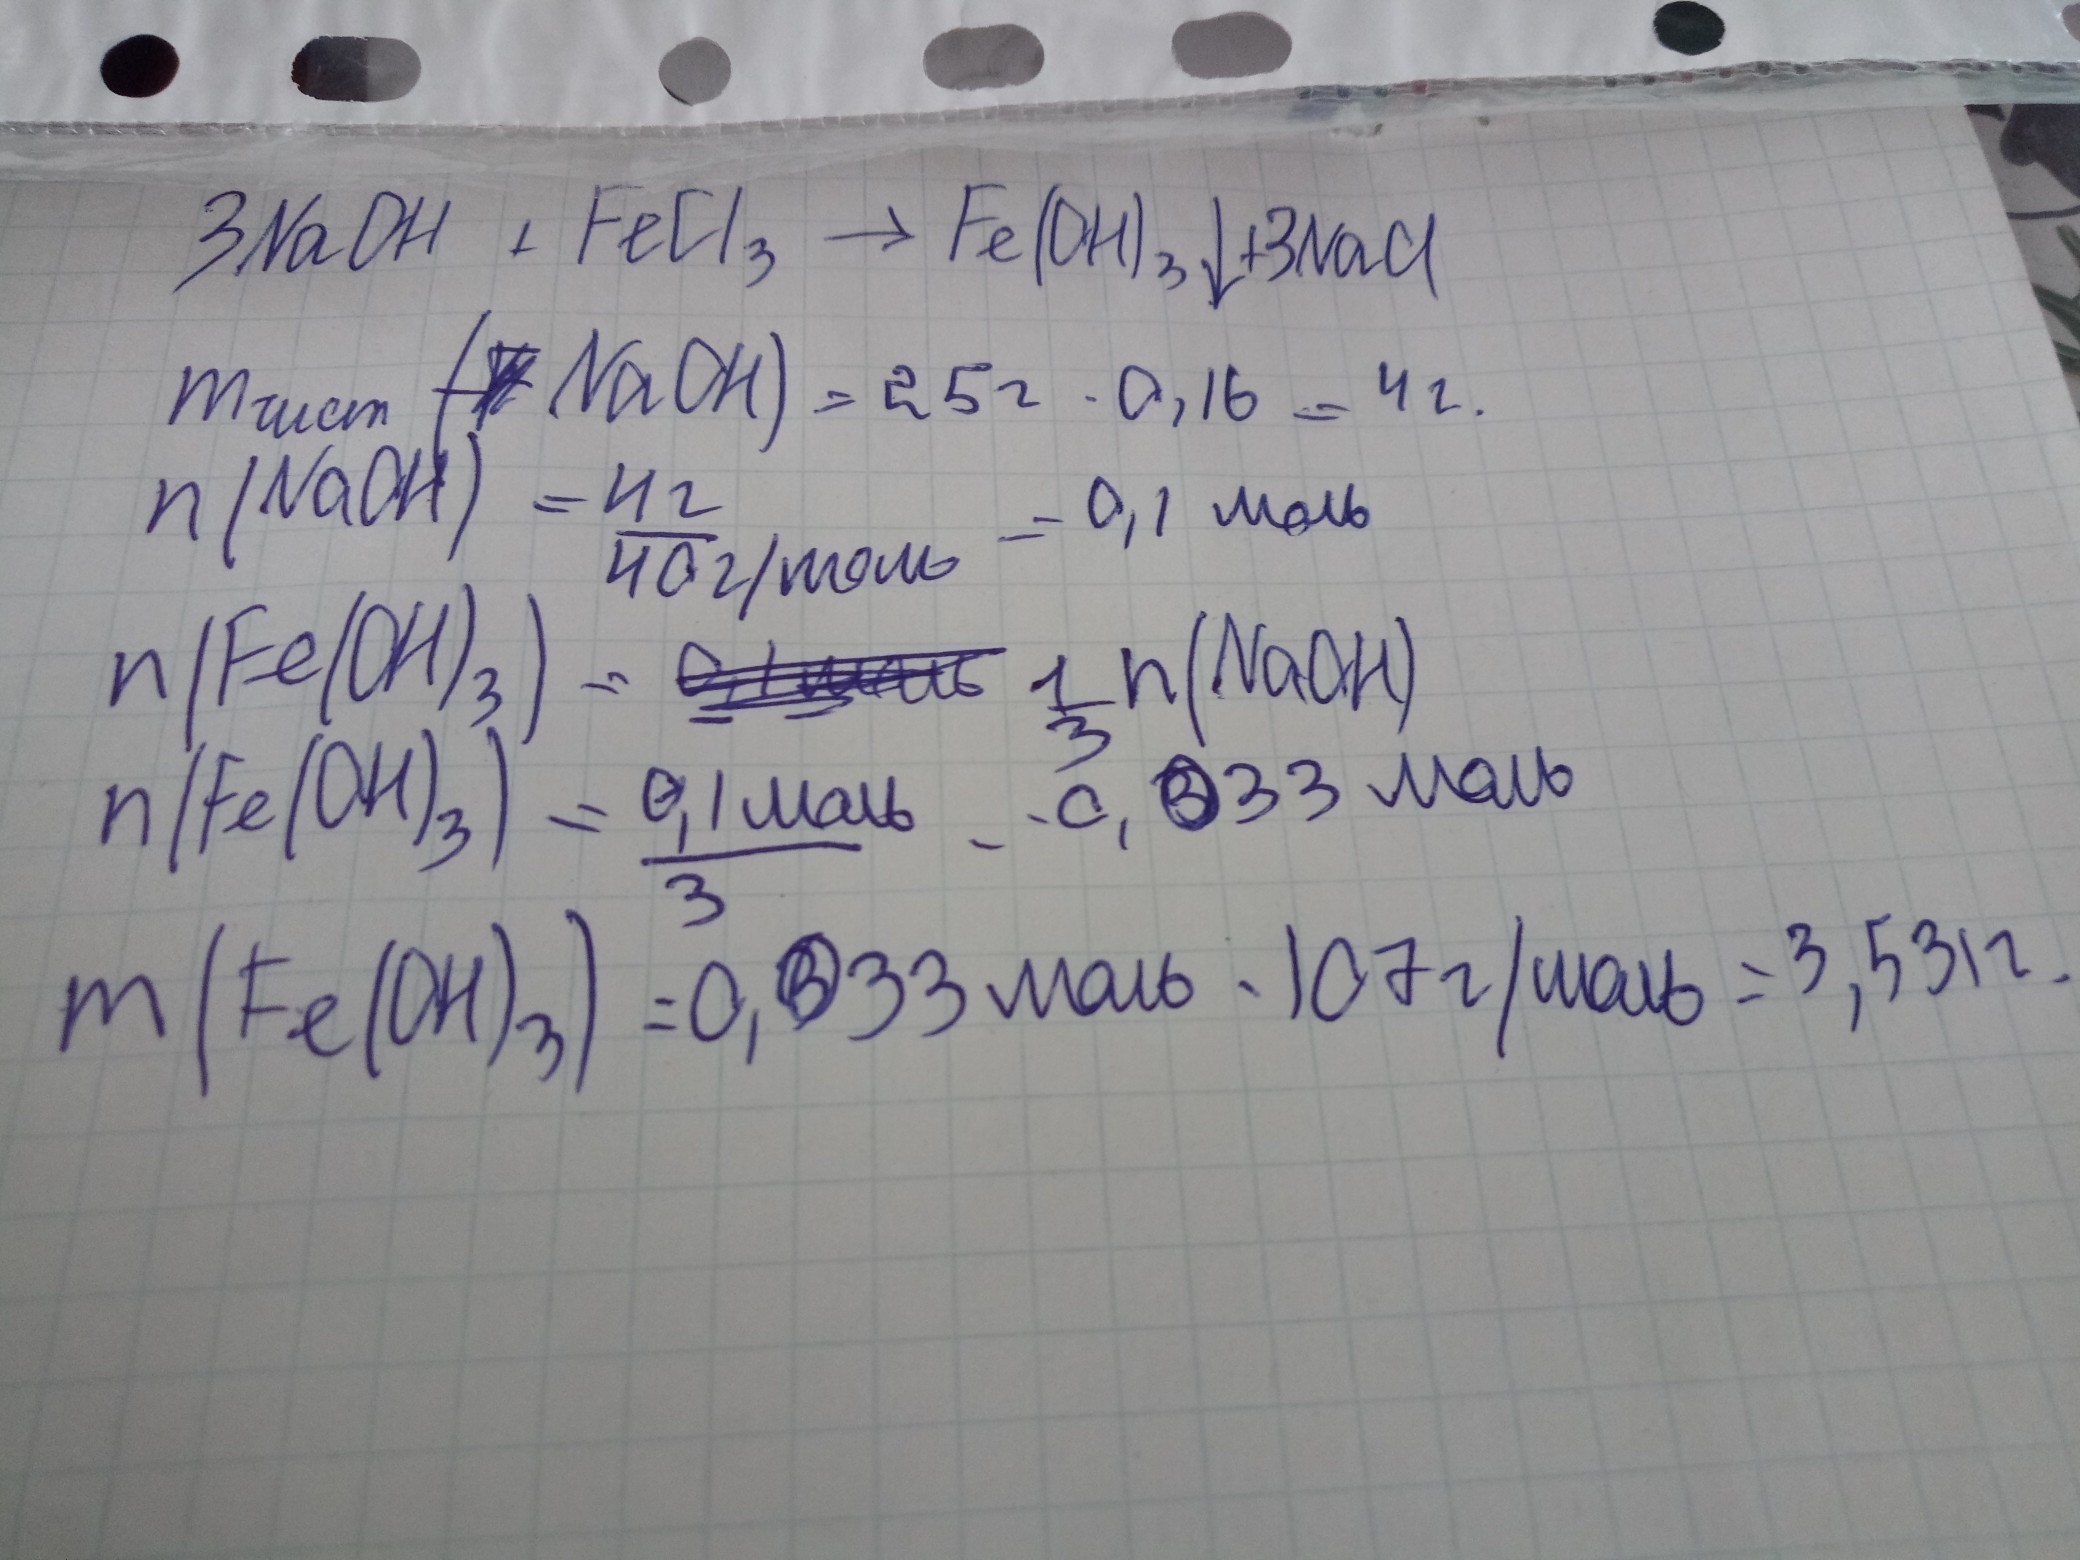 3NaOH + FeCl₃ → Fe(OH)₃↓+3NaCl
mчист (NaOH) = 25г · 0,16 = 4г.
n(NaOH) = 4г/40г/моль = 0,1 моль
n(Fe(OH)₃) = 1/3 n(NaOH)
n(Fe(OH)₃) = 0,1моль/3 = 0,033 моль
m(Fe(OH)₃) = 0,033 моль · 107г/моль = 3,531г.